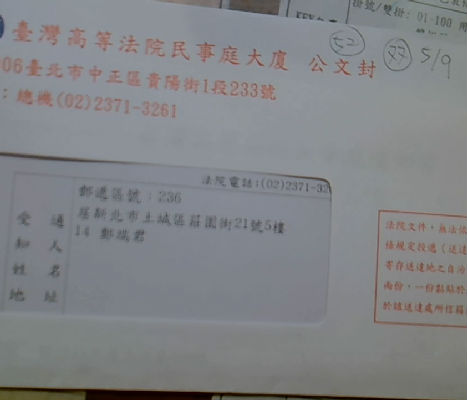 掛號/雙掛: 01-100
臺灣高等法院民事庭大廈 公文封
52
33 5/9
06臺北市中正區貴陽街1段233號
:總機(02)2371-3261
法院電話:(02)2371-32
郵遞區號:236
居新北市土城區莊園街21號5樓
14 鄭瑞君
受通
知人
姓名
地址
法院文件,無法依
條規定投遞(送達
寄存送達地之自治
兩份,一份黏貼於
於該送達處所信箱